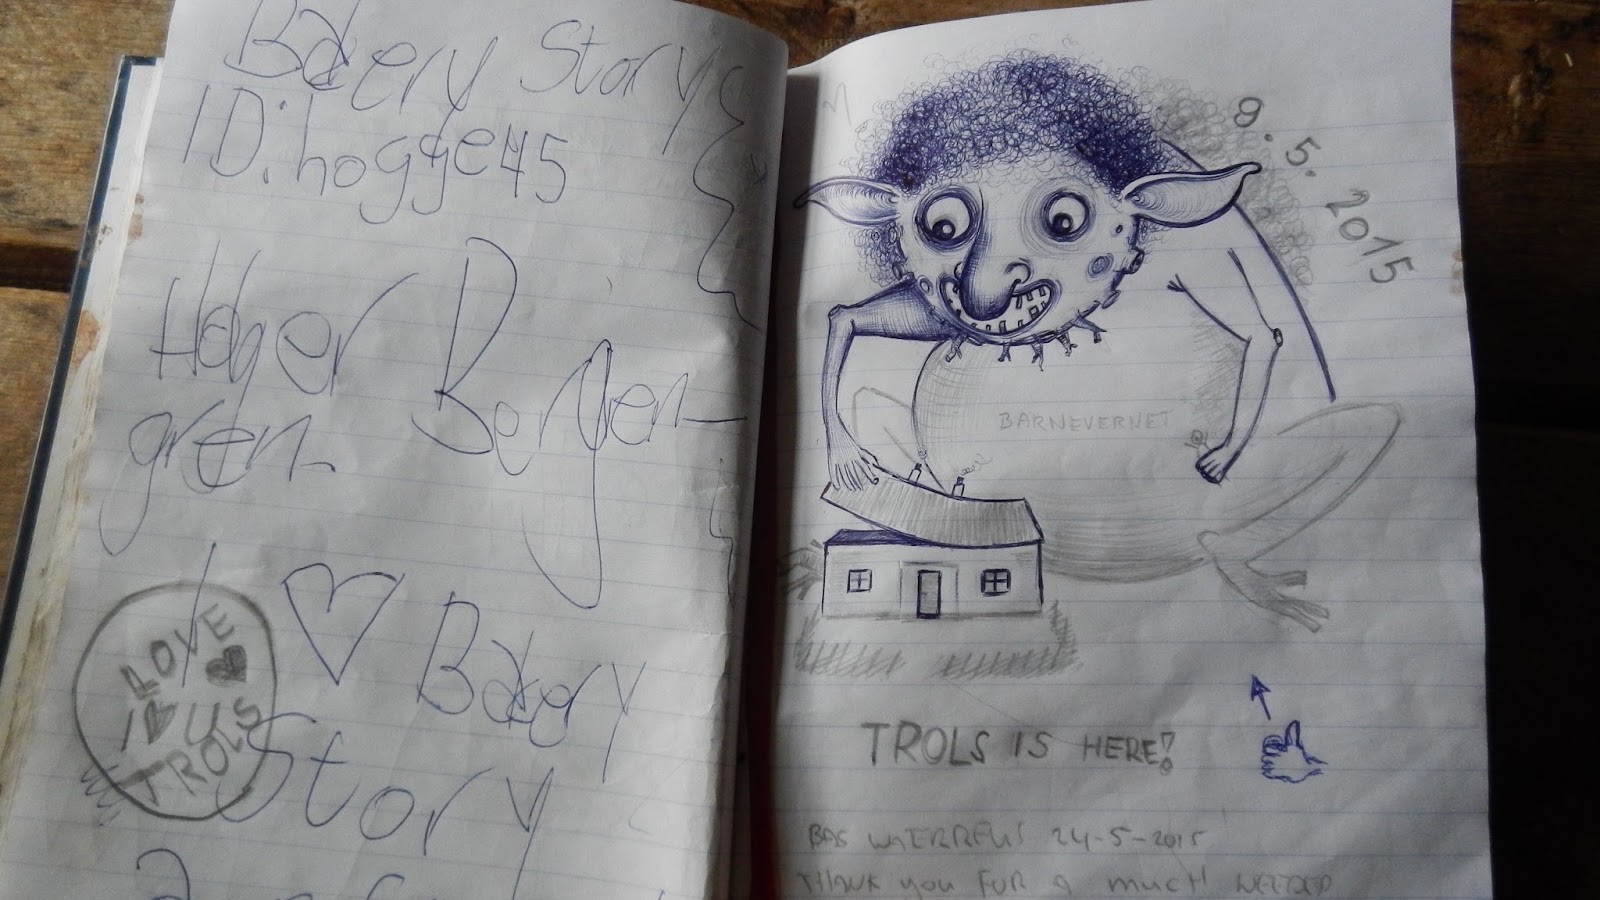 Bakery Story
ID: hogge45
Holger Bergen-
gren
I ♥ Bakery
Story
LOVE
I ♥ U
TROLS
9.5.2015
BARNEVERNET
TROLS IS HERE!
BAS 24-5-2015
THANK YOU FOR A MUCH NEEDED